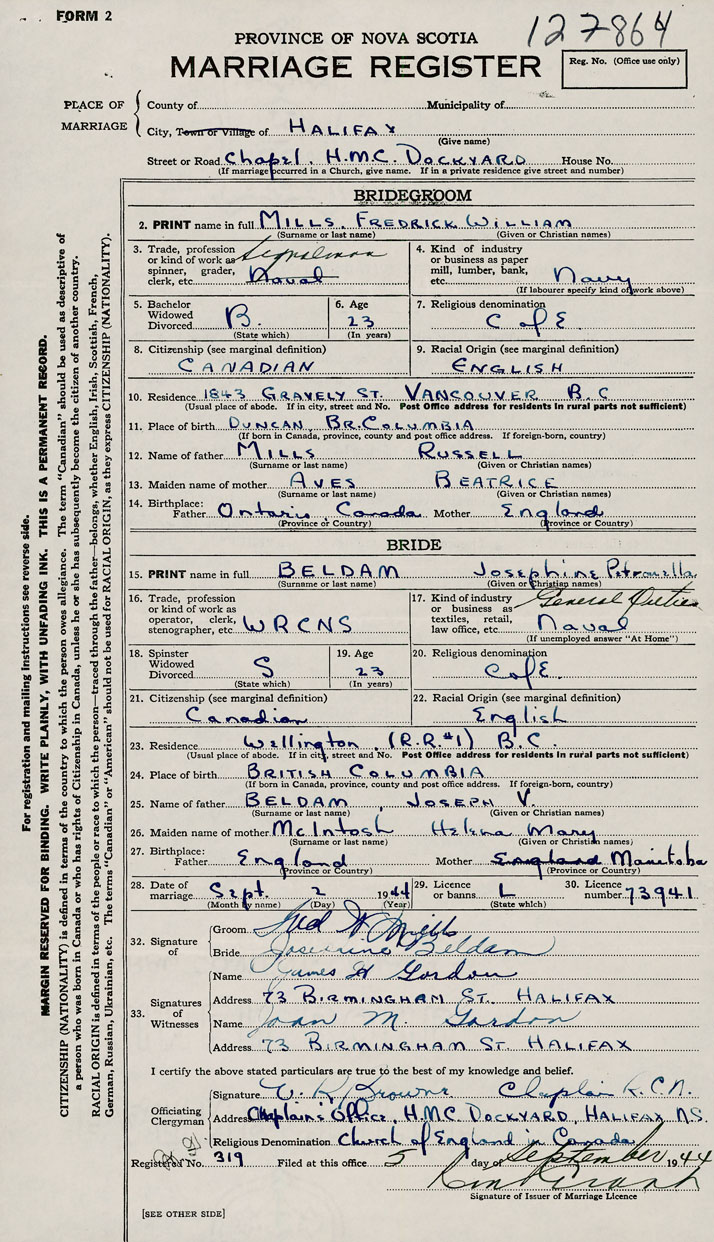 FORM 2
127864
PROVINCE OF NOVA SCOTIA
MARRIAGE REGISTER
Reg. No. (Office use only)
PLACE OF MARRIAGE
County of Municipality of
City, Town or Village of HALIFAX
(Give name)
Street or Road Chapel, H.M.C. DOCKYARD House No.
(If marriage occurred in a Church, give name. If in a private residence give street and number)
BRIDEGROOM
2. PRINT name in full MILLS, FREDRICK WILLIAM
(Surname or last name) (Given or Christian names)
3. Trade, profession or kind of work as spinner, grader, clerk, etc. Signalman Naval
4. Kind of industry or business as paper mill, lumber, bank, etc. Navy
(If labourer specify kind of work above)
5. Bachelor Widowed Divorced B.
(State which)
6. Age 23
(In years)
7. Religious denomination C of E
8. Citizenship (see marginal definition) CANADIAN
9. Racial Origin (see marginal definition) ENGLISH
10. Residence 1843 GRAVELY ST. VANCOUVER B.C
(Usual place of abode. If in city, street and No. Post Office address for residents in rural parts not sufficient)
11. Place of birth DUNCAN, BR. COLUMBIA
(If born in Canada, province, county and post office address. If foreign-born, country)
12. Name of father MILLS RUSSELL
(Surname or last name) (Given or Christian names)
13. Maiden name of mother AVES BEATRICE
(Surname or last name) (Given or Christian names)
14. Birthplace: Father Ontario, Canada Mother England
(Province or Country) (Province or Country)
BRIDE
15. PRINT name in full BELDAM Josephine Petronella
(Surname or last name) (Given or Christian names)
16. Trade, profession or kind of work as operator, clerk, stenographer, etc WRCNS
17. Kind of industry or business as textiles, retail, law office, etc. General Duties Naval
(If unemployed answer "At Home")
18. Spinster Widowed Divorced S
(State which)
19. Age 23
(In years)
20. Religious denomination C of E.
21. Citizenship (see marginal definition) Canadian
22. Racial Origin (see marginal definition) English
23. Residence Wellington, (R.R.#1) B.C.
(Usual place of abode. If in city, street and No. Post Office address for residents in rural parts not sufficient)
24. Place of birth BRITISH COLUMBIA
(If born in Canada, province, county and post office address. If foreign-born, country)
25. Name of father BELDAM, JOSEPH V.
(Surname, or last name) (Given or Christian names)
26. Maiden name of mother McIntosh Helena Mary
(Surname or last name) (Given or Christian names)
27. Birthplace: Father England Mother England Manitoba
(Province or Country) (Province or Country)
28. Date of marriage Sept. 2 1944
(Month by name) (Day) (Year)
29. Licence or banns L
(State which)
30. Licence number 73941
32. Signature of
Groom Fred W Mills
Bride Josephine Beldam
33. Signatures of Witnesses
Name James H Gordon
Address 73 BIRMINGHAM ST. HALIFAX
Name Joan M. Gordon
Address 73 BIRMINGHAM ST. HALIFAX
I certify the above stated particulars are true to the best of my knowledge and belief.
Officiating Clergyman
Signature Browne Chaplain R.C.N.
Address Chaplain's Office, H.M.C. DOCKYARD, HALIFAX N.S.
Religious Denomination Church of England in Canada
Registered No. 319 Filed at this office 5 day of September 1944
Signature of Issuer of Marriage Licence
[SEE OTHER SIDE]
For registration and mailing instructions see reverse side.
MARGIN RESERVED FOR BINDING. WRITE PLAINLY, WITH UNFADING INK. THIS IS A PERMANENT RECORD.
CITIZENSHIP (NATIONALITY) is defined in terms of the country to which the person owes allegiance. The term "Canadian" should be used as descriptive of
a person who was born in Canada or who has rights of Citizenship in Canada, unless he or she has subsequently become the citizen of another country.
RACIAL ORIGIN is defined in terms of the people or race to which the person—traced through the father—belongs, whether English, Irish, Scottish, French,
German, Russian, Ukrainian, etc. The terms "Canadian" or "American" should not be used for RACIAL ORIGIN, as they express CITIZENSHIP (NATIONALITY).